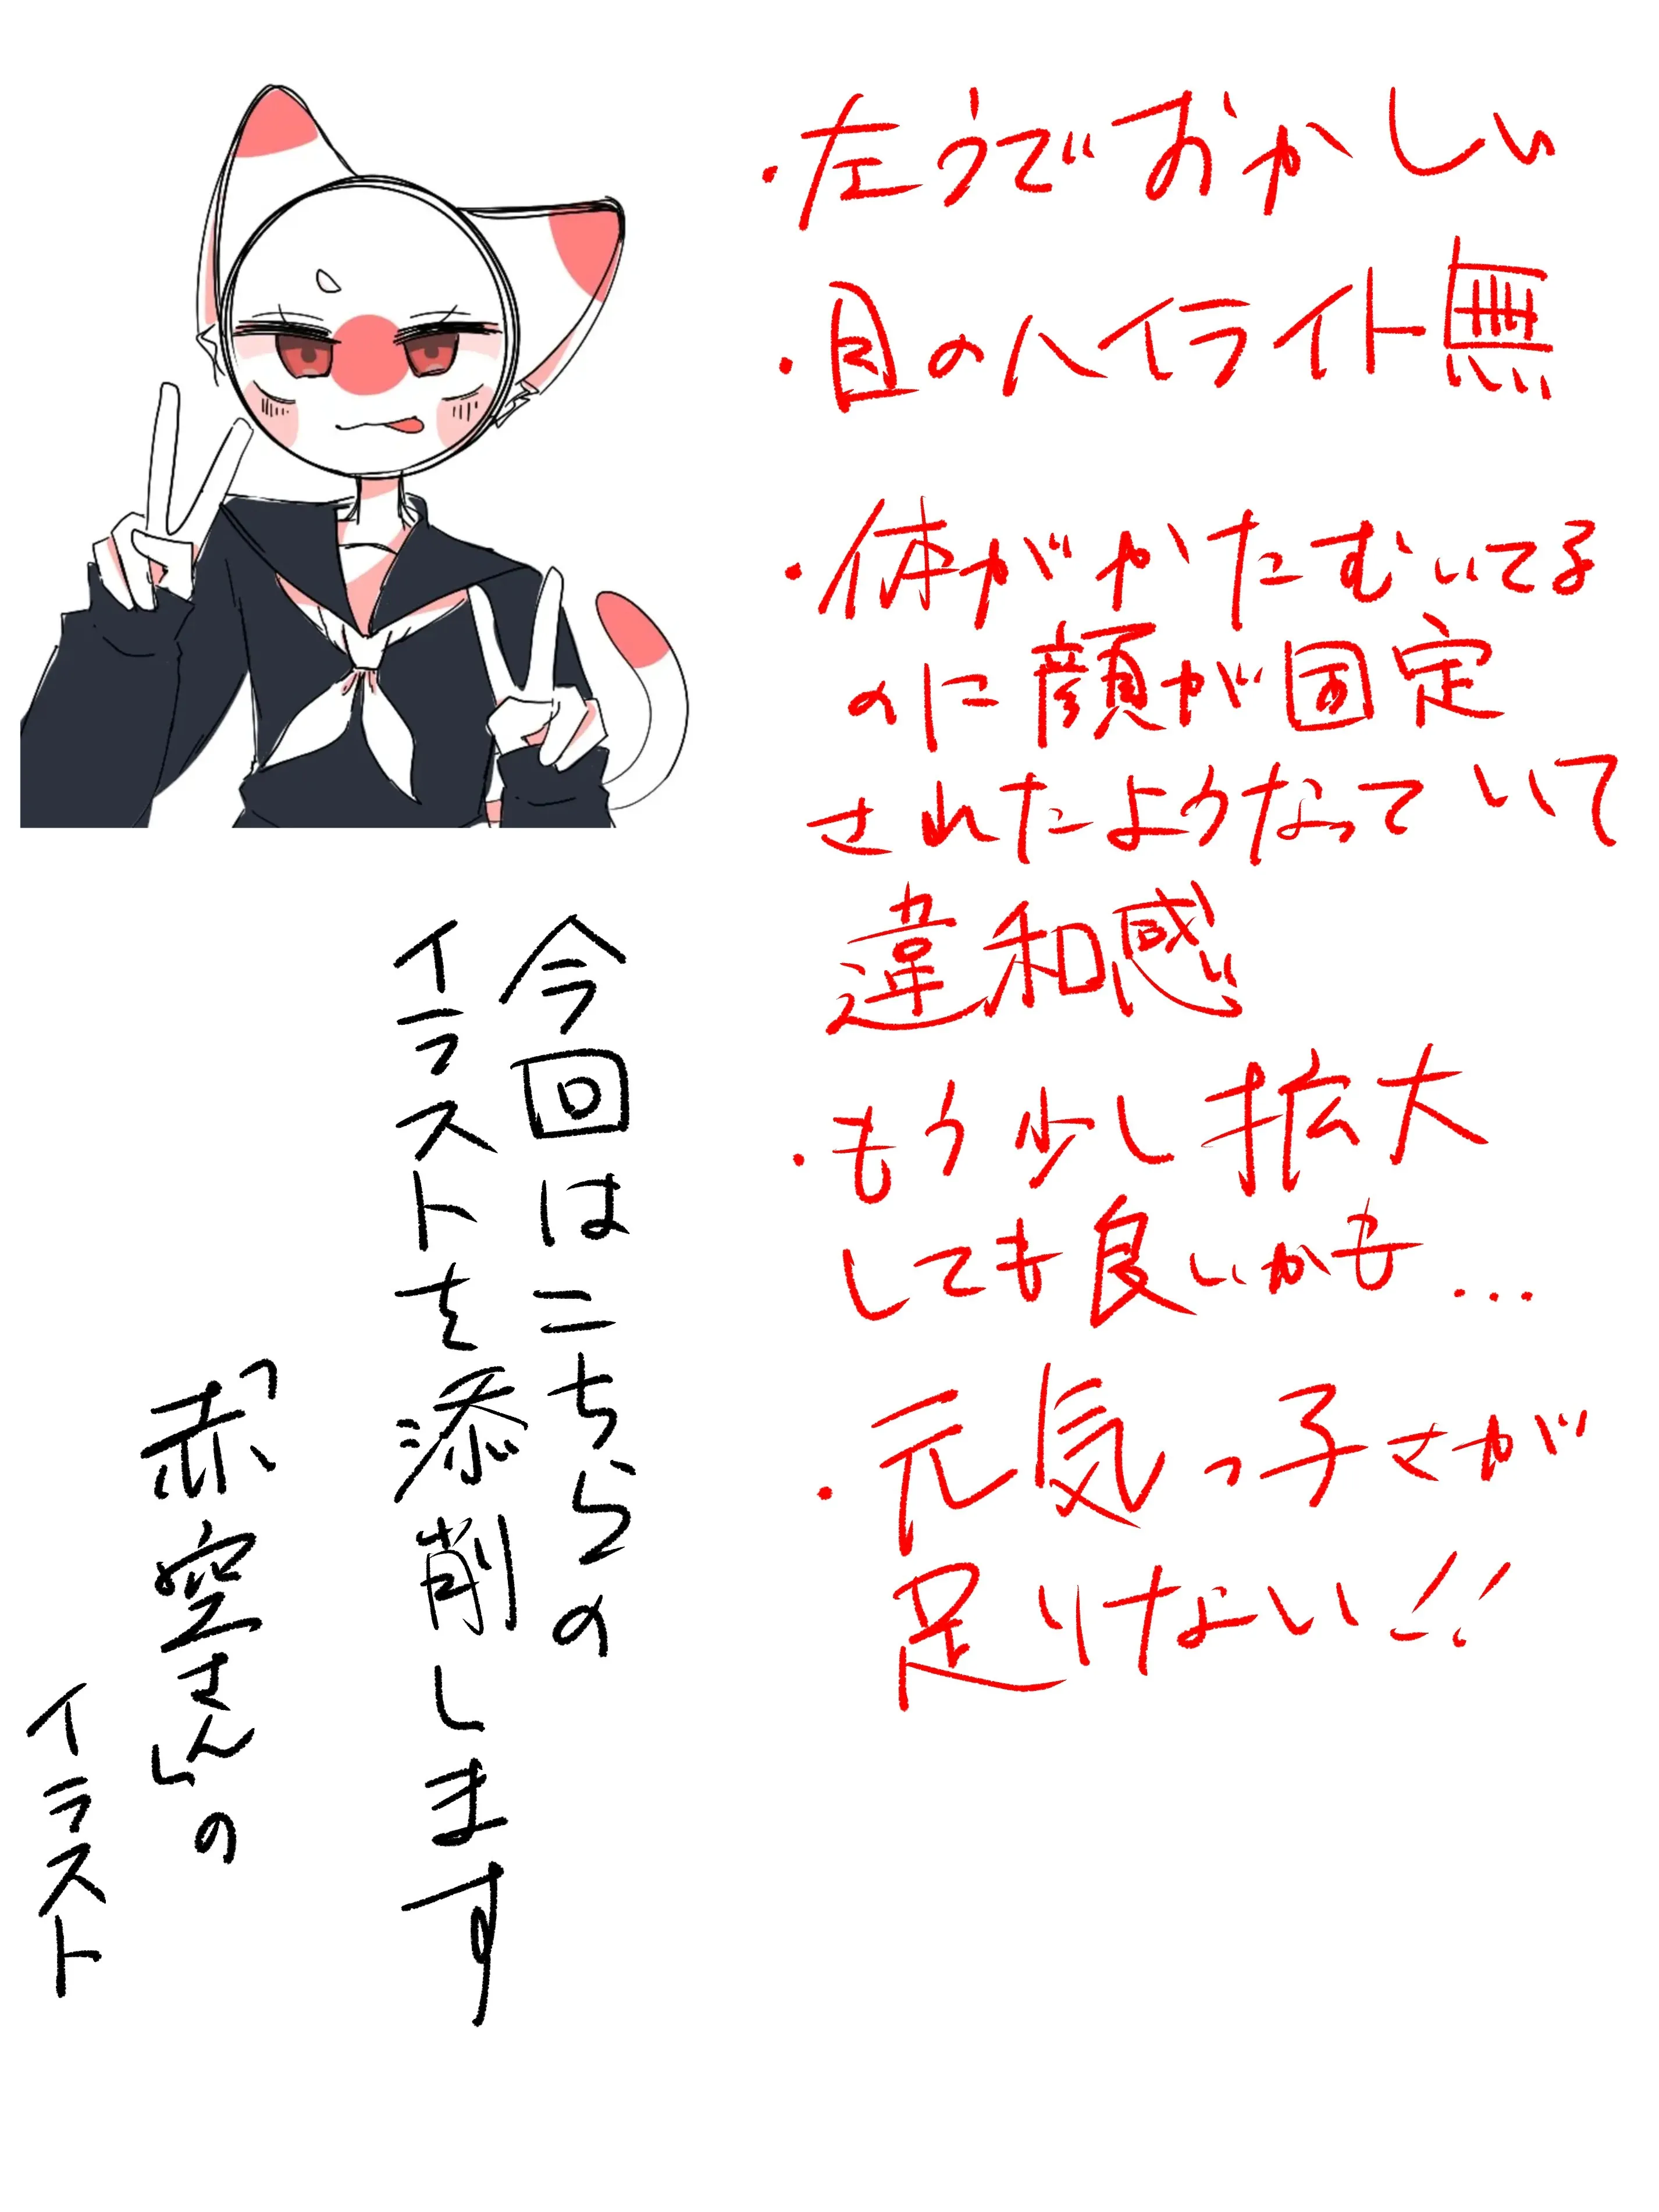 ・左うでおかしい
・目のハイライト無
・体がかたむいてる
のに顔が固定
されたようなっていて
違和感
・もう少し拡大
しても良いかも...
・元気っ子さが
足りけない!!
今回はこちらの
イラストを添削します
「赤空さん」の
イラスト